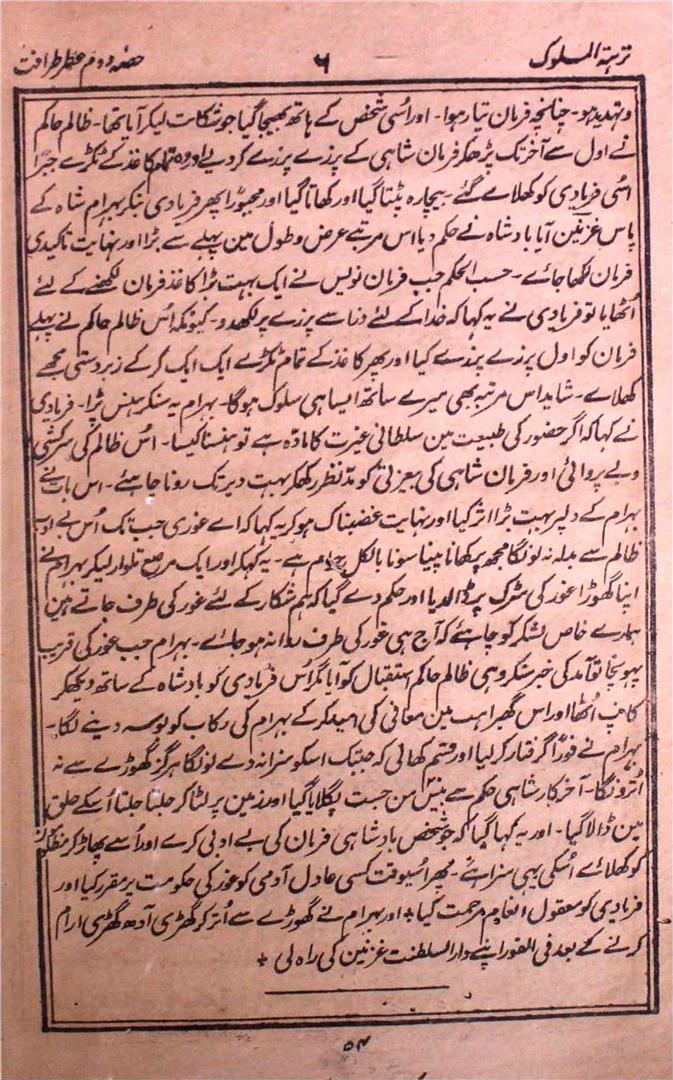 نزہتہ الملوک ۶ حصہ دوم عطر ظرافت
و تہدید ہو۔ چنانچہ فرمان تیار ہوا۔ اور اُسی شخص کے ہاتھ بھیجا گیا جو شکایت لیکر آیا تھا۔ ظالم حاکم
نے اول سے آخر تک پڑھکر فرمان شاہی کے پرزے پرزے کر دیے اور وہ تمام کاغذ کے ٹکڑے جبراً
اُسی فریادی کو کھلائے گئے بیچارہ پٹتا گیا اور کھاتا گیا اور مجبوراً پھر فریادی بنکر بہرام شاہ کے
پاس غزنین آیا بادشاہ نے حکم دیا اس مرتبے عرض و طول مین پہلے سے بڑا اور نہایت تاکیدی
فرمان لکھا جائے۔ حسب الحکم جب فرمان نویس نے ایک بہت بڑا کاغذ فرمان لکھنے کے لئے
اُٹھایا تو فریادی نے یہ کہا کہ خدا کے لئے ذرا سے پرزے پر لکھدو۔ کیونکہ اُس ظالم حاکم نے پہلے
فرمان کو اول پرزے پرزے کیا اور پھر کاغذ کے تمام ٹکڑے ایک ایک کر کے زبردستی مجھے
کھلائے۔ شاید اس مرتبہ بھی میرے ساتھ ایسا ہی سلوک ہوگا۔ بہرام یہ سنکر ہنس پڑا۔ فریادی
نے کہا کہ اگر حضور کی طبیعت مین سلطانی غیرت کا مادّہ ہے تو ہنسنا کیسا۔ اُس ظالم کی سرکشی
و بے پروائی اور فرمان شاہی کی بیعزتی کو مدّ نظر رکھکر بہت دیر تک رونا چاہئے۔ اس بات نے
بہرام کے دلپر بہت بڑا اثر کیا اور نہایت غضبناک ہو کر یہ کہا کہ اے غوری جب تک اُس بے ادب
ظالم سے بدلہ نہ لونگا مجھ پر کھانا پینا سونا بالکل حرام ہے۔ یہ کہکر اور ایک مرصع تلوار لیکر بہرام نے
اپنا گھوڑا غور کی سڑک پر ڈالدیا اور حکم دے گیا کہ ہم شکار کے لئے غور کی طرف جاتے ہین
ہمارے خاص لشکر کو چاہئے کہ آج ہی غور کی طرف روانہ ہو جائے۔ بہرام جب غور کی قریب
پہونچا تو آمد کی خبر سنکر وہی ظالم حاکم استقبال کو آیا مگر اُس فریادی کو بادشاہ کے ساتھ دیکھکر
کانپ اُٹھا اور اس گھبراہٹ مین معافی کی امید کر کے بہرام کی رکاب کو بوسہ دینے لگا۔
بہرام نے فوراً گرفتار کر لیا اور قسم کھائی کہ جبتک اسکو سزا نہ دے لونگا ہرگز گھوڑے سے نہ
اُترونگا۔ آخر کار شاہی حکم سے بیس من جست پگلایا گیا اور زمین پر لٹا کر جلتا جلتا اُسکے حلق
مین ڈالا گیا۔ اور یہ کہا گیا کہ جو شخص بادشاہی فرمان کی بے ادبی کرے اور اُسے پھاڑ کر مظلوم
کو کھلائے اُسکی یہی سزا ہے۔ پھر اُسیوقت کسی عادل آدمی کو غور کی حکومت پر مقرر کیا اور
فریادی کو معقول انعام مرحمت کیا٭ اور بہرام نے گھوڑے سے اُتر کر گھڑی آدھ گھڑی آرام
کرنے کے بعد فی الفور اپنے دار السلطنت غزنین کی راہ لی ٭
۵۴